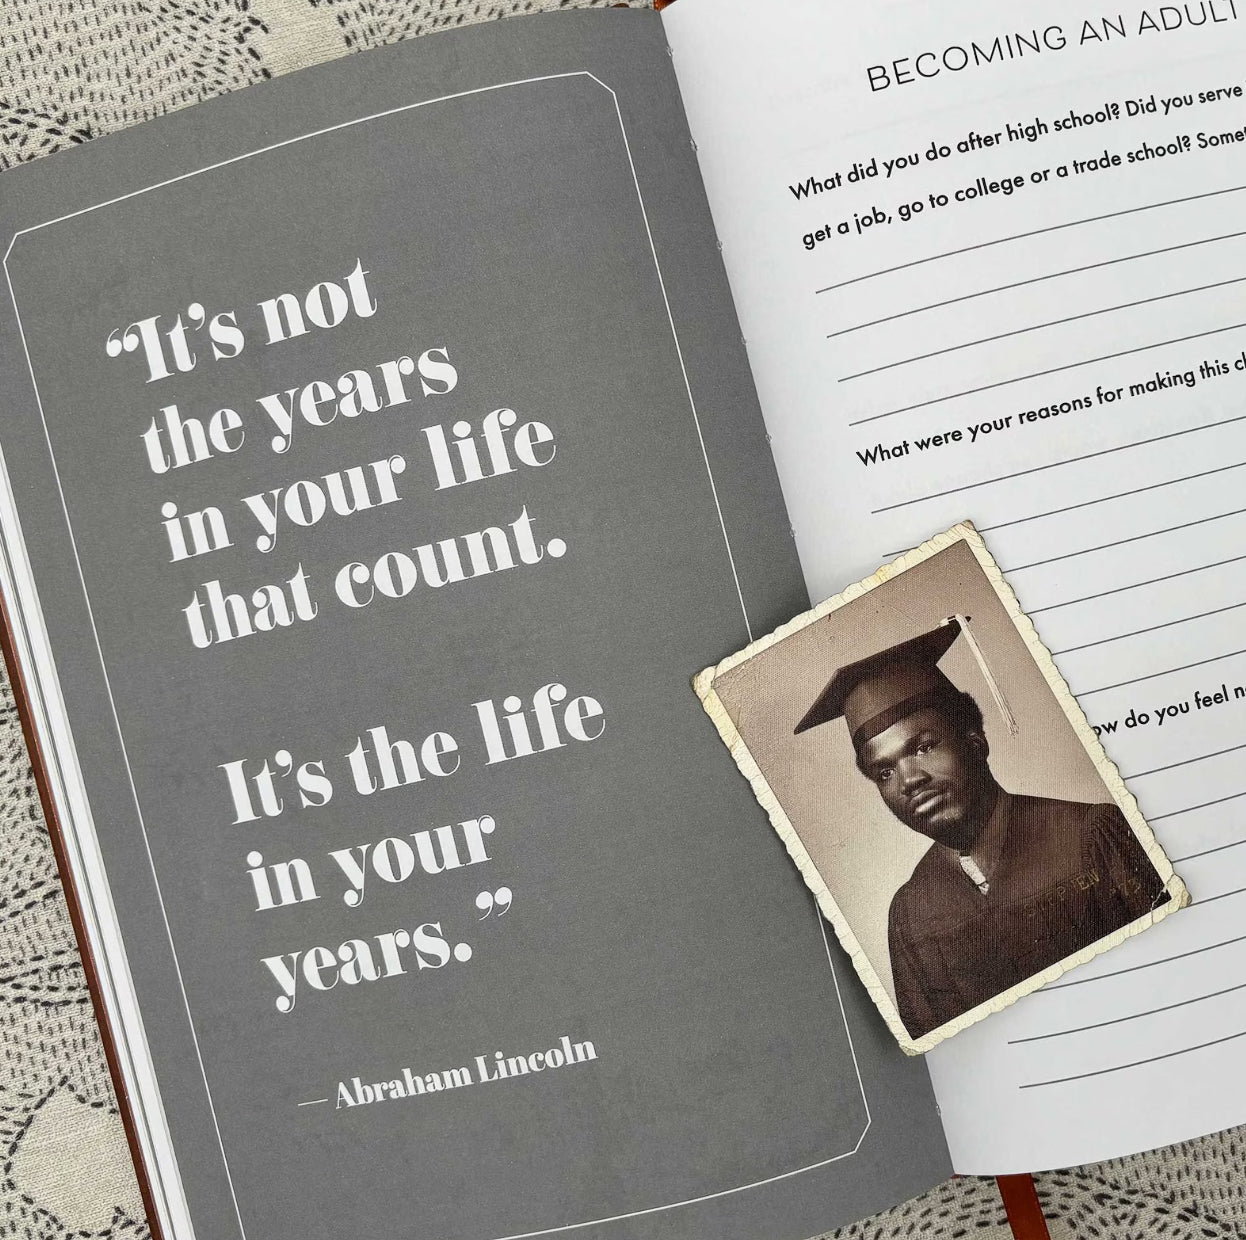 “It’s not
the years
in your life
that count.
It’s the life
in your
years.”
— Abraham Lincoln
BECOMING AN ADULT
What did you do after high school? Did you serve
get a job, go to college or a trade school? Somet
What were your reasons for making this ch
ow do you feel n